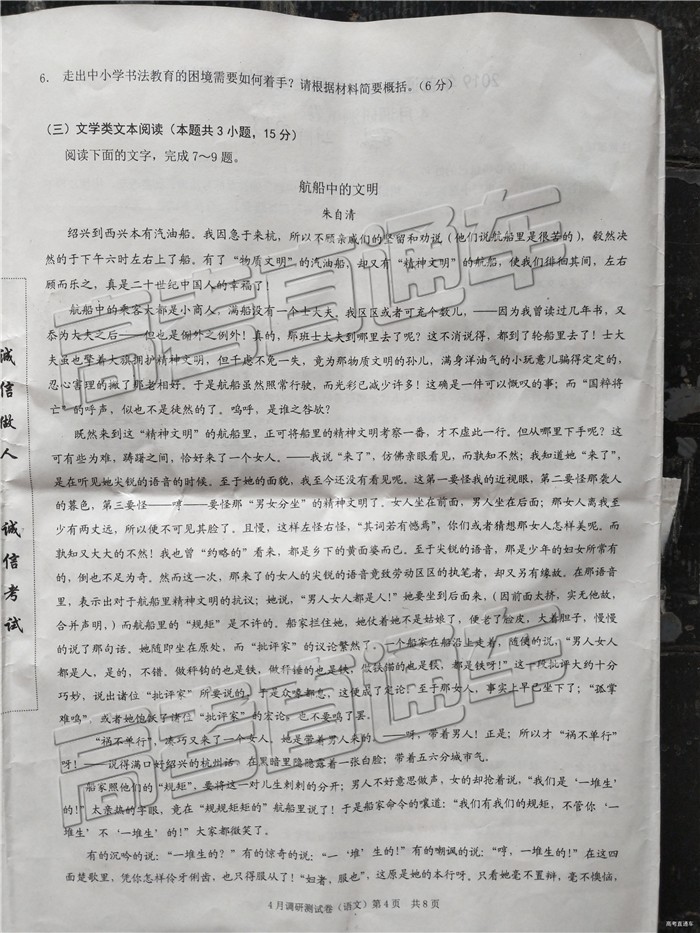 6. 走出中小学书法教育的困境需要如何着手？请根据材料简要概括。(6分)
（三）文学类文本阅读（本题共3小题，15分）
阅读下面的文字，完成7～9题。
航船中的文明
朱自清
绍兴到西兴本有汽油船。我因急于来杭，所以不顾亲戚们的坚留和劝说（他们说航船里是很苦的），毅然决
然的于下午六时左右上了船。有了“物质文明”的汽油船，却又有“精神文明”的航船，使我们徘徊其间，左右
顾而乐之，真是二十世纪中国人的幸福了！
航船中的乘客大都是小商人，满船没有一个士大夫，我区区或者可充个数儿，——因为我曾读过几年书，又
忝为大夫之后——但也是例外之例外！真的，那班士大夫到哪里去了呢？这不消说得，都到了轮船里去了！士大
夫虽也擎着大旗拥护精神文明，但千虑不免一失，竟为那物质文明的孙儿，满身洋油气的小玩意儿骗得定定的，
忍心害理的撇了那老相好。于是航船虽然照常行驶，而光彩已减少许多！这确是一件可以慨叹的事；而“国粹将
亡”的呼声，似也不是徒然的了。呜呼，是谁之咎欤？
既然来到这“精神文明”的航船里，正可将船里的精神文明考察一番，才不虚此一行。但从哪里下手呢？这
可有些为难，踌躇之间，恰好来了一个女人。——我说“来了”，仿佛亲眼看见，而孰知不然；我知道她“来了”，
是在听见她尖锐的语音的时候。至于她的面貌，我至今还没有看见呢。这第一要怪我的近视眼，第二要怪那袭人
的暮色，第三要怪——哼——要怪那“男女分坐”的精神文明了。女人坐在前面，男人坐在后面；那女人离我至
少有两丈远，所以便不可见其脸了。且慢，这样左怪右怪，“其词若有憾焉”，你们或者猜想那女人怎样美呢。而
孰知又大大的不然！我也曾“约略的”看来，都是乡下的黄面婆而已。至于尖锐的语音，那是少年的妇女所常有
的，倒也不足为奇。然而这一次，那来了的女人的尖锐的语音竟致劳动区区的执笔者，却又另有缘故。在那语音
里，表示出对于航船里精神文明的抗议；她说，“男人女人都是人！”她要坐到后面来，（因前面太挤，实无他故，
合并声明，）而航船里的“规矩”是不许的。船家拦住她，她仗着她不是姑娘了，便老了脸皮，大着胆子，慢慢
的说了那句话。她随即坐在原处，而“批评家”的议论繁然了。一个船家在船沿上走着，随便的说，“男人女人
都是人，是的，不错。做秤钩的也是铁，做秤锤的也是铁，做铁锚的也是铁，都是铁呀！”这一段批评大约十分
巧妙，说出诸位“批评家”所要说的，于是众喙都息，这便成了定论。至于那女人，事实上早已坐下了；“孤掌
难鸣”，或者她饱饫了诸位“批评家”的宏论，也不要鸣了罢。
“祸不单行”，凑巧又来了一个女人，她是带着男人来的。——呀，带着男人！正是；所以才“祸不单行”
呀！——说得满口好绍兴的杭州话，在黑暗里隐隐露着一张白脸；带着五六分城市气。
船家照他们的“规矩”，要将这一对儿生刺刺的分开；男人不好意思做声，女的却抢着说，“我们是‘一堆生’
的！”太亲热的字眼，竟在“规规矩矩的”航船里说了！于是船家命令的嚷道：“我们有我们的规矩，不管你‘一
堆生’不‘一堆生’的！”大家都微笑了。
有的沉吟的说：“一堆生的？”有的惊奇的说：“一‘堆’生的！”有的嘲讽的说：“哼，一堆生的！”在这四
面楚歌里，凭你怎样伶牙俐齿，也只得服从了！“妇者，服也”，这原是她的本行呀。只看她毫不置辩，毫不懊恼，
4月调研测试卷（语文）第4页 共8页
诚信做人 诚信考试
高考直通车
高考直通车
高考直通车